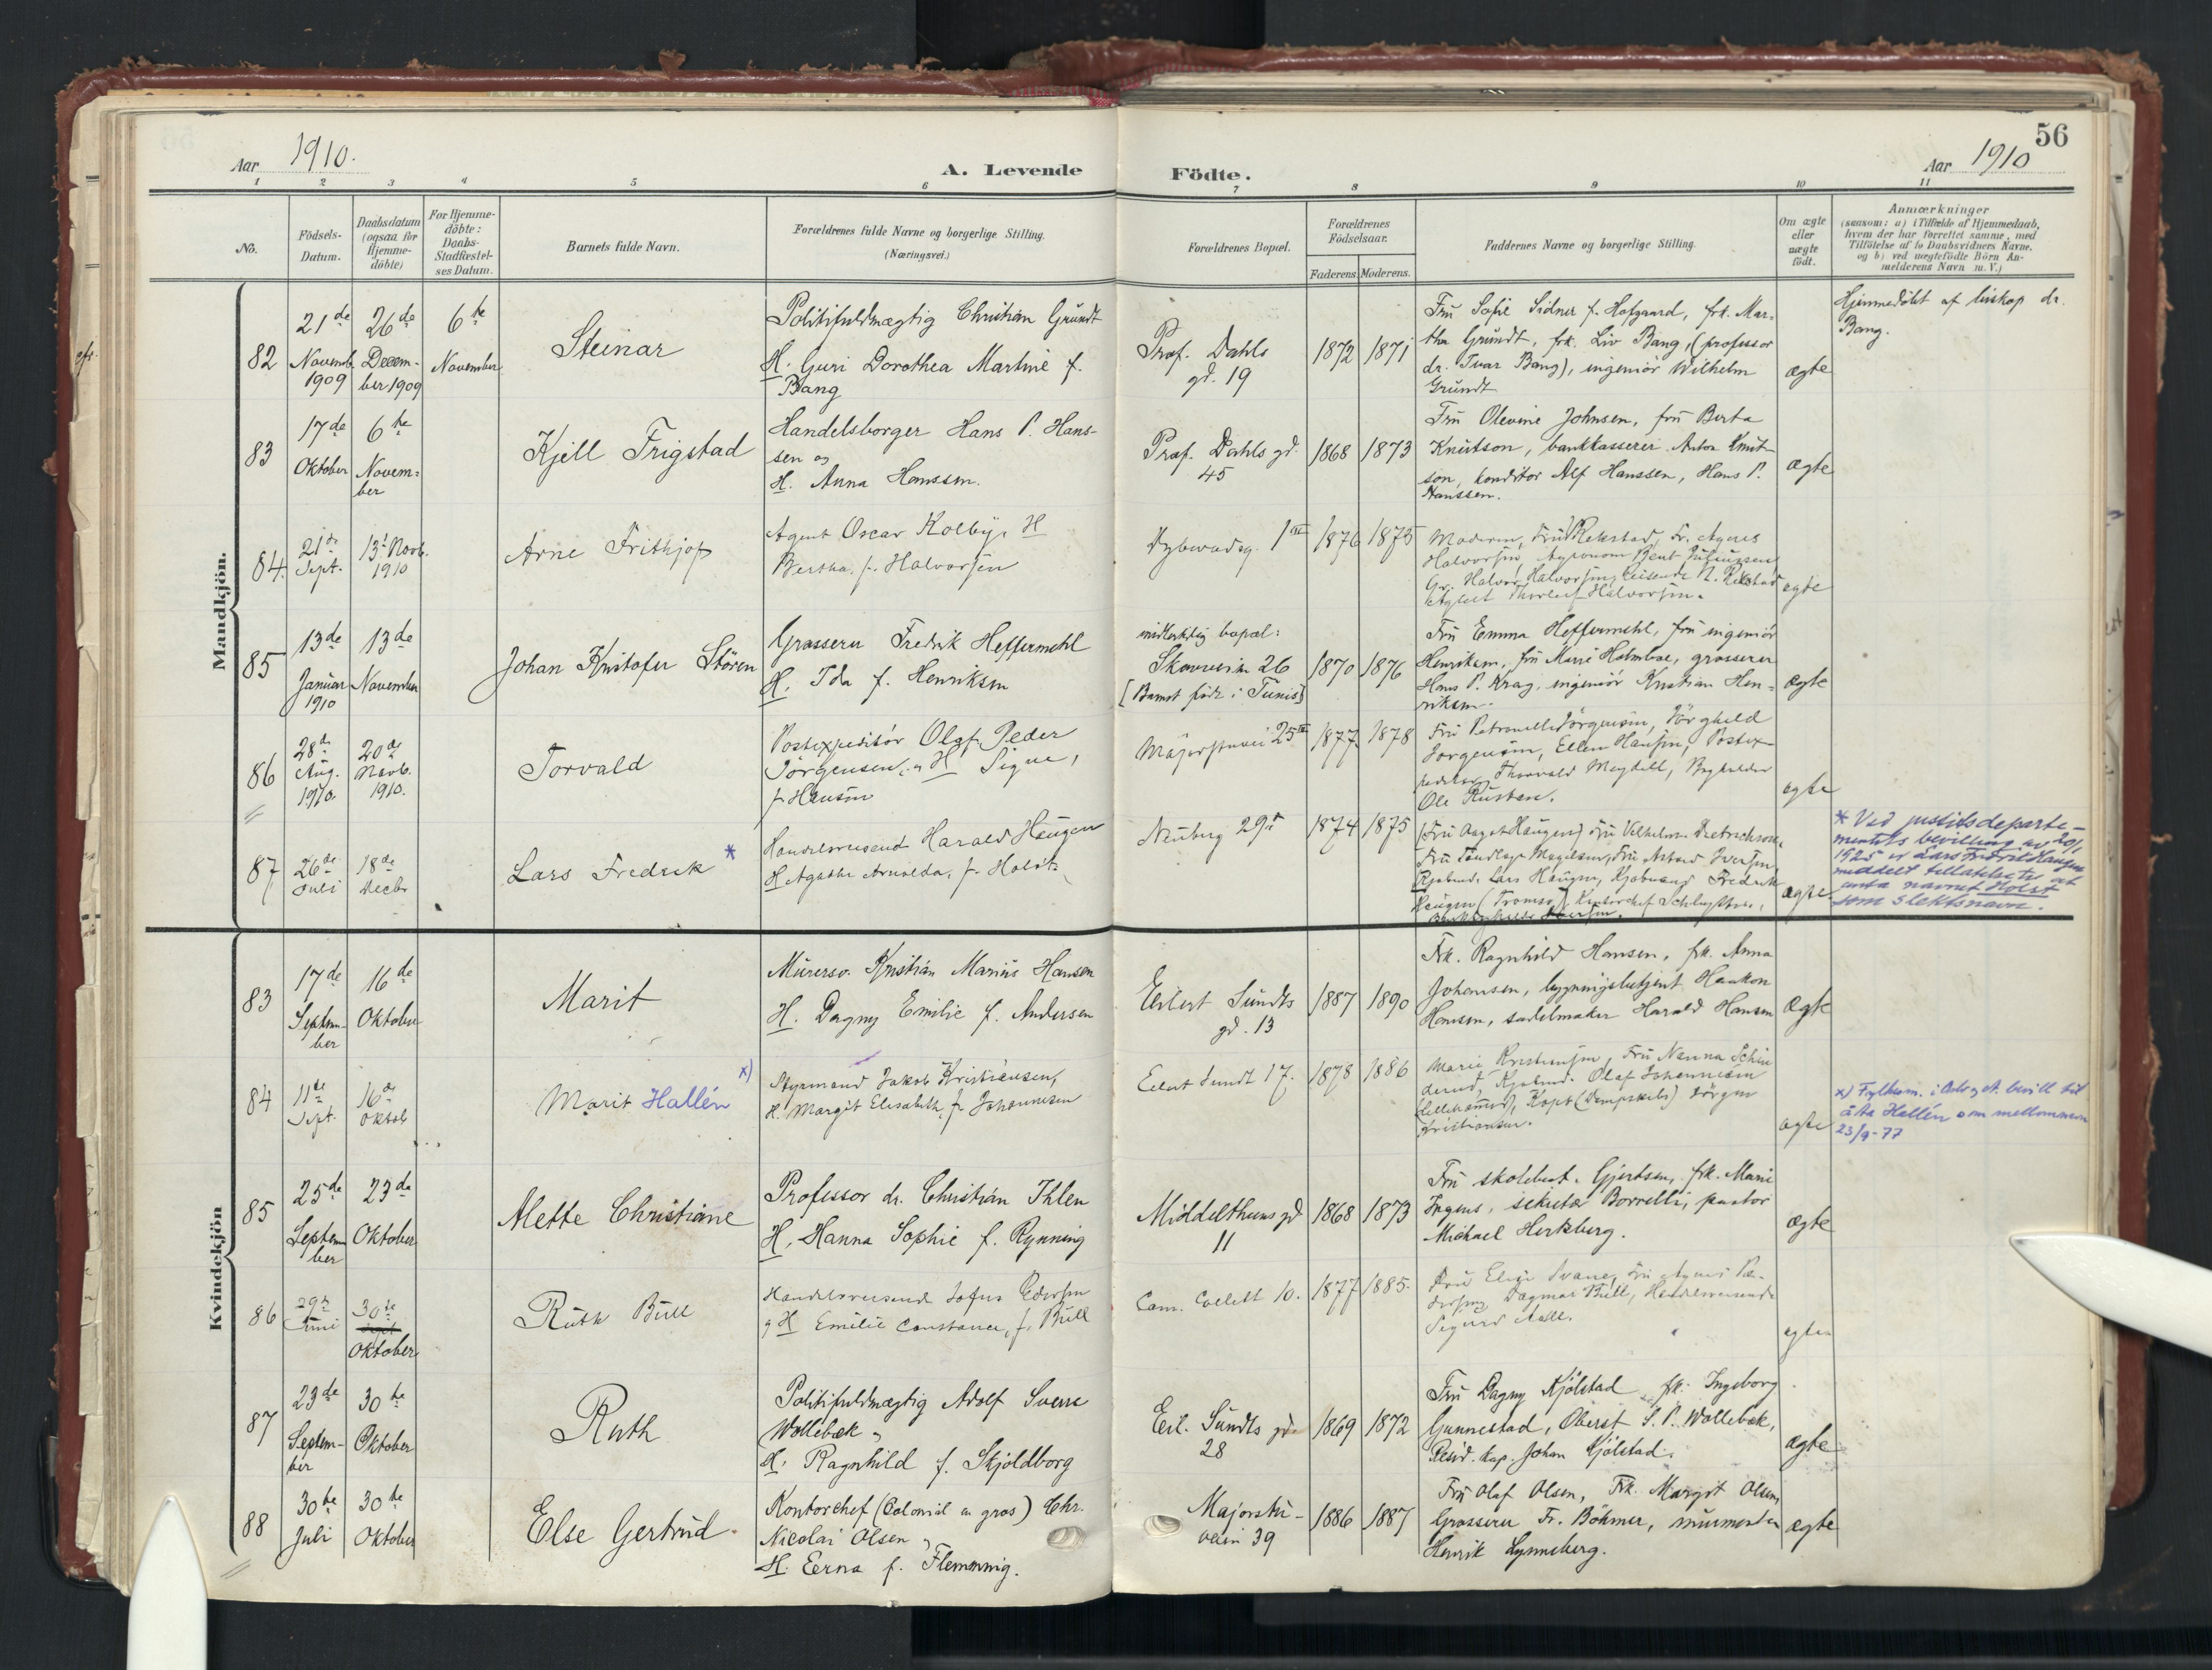 56
Aar 1910.
A. Levende Födte.
Aar 1910
1 2 3 4 5 6 7 8 9 10 11
No.
Födsels-
Datum.
Daabsdatum
(ogsaa for
Hjemme-
döbte)
For Hjemme-
döbte:
Daabs-
Stadfæstel-
ses Datum.
Barnets fulde Navn.
Forældrenes fulde Navne og borgerlige Stilling.
(Næringsvei.)
Forældrenes Bopæl.
Forældrenes
Födselsaar.
Faderens. Moderens.
Faddernes Navne og borgerlige Stilling.
Om ægte
eller
uægte
födt.
Anmærkninger
(saasom: a) i Tilfælde af Hjemmedaab,
hvem der har forrettet samme, med
Tilföielse af to Daabsvidners Navne,
og b) ved uægtefödte Börn An-
melderens Navn m. V.)
Mandkjön.
82
21de
Novemb.
1909
26de
Decem-
ber 1909
6te
November
Steinar
Politifuldmægtig Christian Grundt
H. Guri Dorothea Martine f.
Bang
Prof. Dahls
gd. 19
1872 1871
Fru Sofie Sidner f. Hofgaard, frk. Mar-
tha Grundt, frk. Liv Bang, (professor
dr. Ivar Bang), ingeniör Wilhelm
Grundt
ægte
Hjemmedöbt af biskop dr.
Bang.
83
17de
Oktober
6te
Novem-
ber
Kjell Frigstad
Handelsborger Hans P. Hans-
sen og
H. Anna Hanssen.
Prof. Dahls gd.
45
1868 1873
Fru Olevine Johnsen, fru Berta
Knutson, bankkasserer Anton Knut-
son, konditor Alf Hanssen, Hans P.
Hanssen.
ægte
84.
21de
Sept.
13' Novb.
1910
Arne Frithjof
Agent Oscar Kolby, H
Bertha, f. Halvorsen
Dybwadsg. 1
1876 1875
Moderen, Fru Rekstad, Fr. Agnes
Halvorsen, Agronom Bent
Gr. Halvor Halvorsen, Reisende N. Rekstad
Thorleif Halvorsen.
egte
85
13de
Januar
1910
13de
November
Johan Kristofer Stören
Grosserer Fredrik Heffermehl
H. Ida f. Henriksen
midlertidig bopæl:
Skovveien 26
[Barnet född i Tunis]
1870 1876
Fru Emma Heffermehl, fru ingeniör
Henriksen, fru Marie Holmboe, grosserer
Hans P. Krag, ingeniör Kristian Hen-
riksen.
ægte
86
28de
Aug.
1910.
20de
Novb.
1910.
Torvald
Postexpeditör Olaf Peder
Jörgensen, H Signe,
f. Hansen
Majorstuvei 25
1877. 1878
Fru Petronelle Jörgensen,
Jorgensen, Ellen Hansen, Postex-
peditör Thorvald Meydell,
Ole Rustan.
egte
87
26de
Juli
18de
Decbr
Lars Fredrik *
Handelsreisend Harald Haugen
H Agathe Arnolda, f. Holst
Neuberg 29
1874 1875
(Fru Aagot Haugen) Fru Vilhelm. Dietrichson,
Fru Magelsen, Fru Astrid Iversen,
Kjøbmd. Lars Haugen, Kjøbmand Fredrik
Haugen (Tromsø), Kontorchef
ægte.
* Ved justitsdeparte-
mentets bevilling av 20/1
1925 er Lars Fredrik Haugen
meddelt tillatelse til at
anta navnet Holst
som slektsnavn.
Kvindekjön
83
17de
Septem-
ber
16de
Oktober
Marit
Murersv. Kristian Marius Hansen
H. Dagny Emilie f. Andersen
Eilert Sundts
gd. 13
1887 1890
Frk. Ragnhild Hansen, frk. Anna
Johansen, bygningsbetjent Haakon
Hansen, sadelmaker Harald Hansen
Ægte
84
11de
Sept.
16de
Oktob
Marit Hallén x)
Styrmand Jakob Kristiansen,
H. Margit Elisabeth, f. Johannesen
Eilert Sundt 17.
1878 1886
Marie Kristiansen, Fru Nanna
Kjøbmd. Olaf Johannesen
(Lillehammer), Kapt (Dampskibs) Jörgen
Kristiansen.
ægte
x) Fylkesm. i Oslo g.t. bevill. til
å ta Hallén som mellomnavn
23/9-77
85
25de
Septem-
ber
23de
Oktober
Mette Christiane
Professor dr. Christian Ihlen
H. Hanna Sophie f. Rynning
Middelthuns gd
11
1868 1873
Fru skolebest. Gjertsen, frk. Marie
Ingens, sekretær Borrelli, pastor
Michael Hertzberg.
ægte
86
29de
Juni
30te
Oktober
Ruth Bull
Handelsreisende Sofus Pedersen
og H Emilie Constance, f. Bull
Cam. Collett 10.
1877 1885.
Fru Elise Svane, Fru Agnes Pe-
dersen, Dagmar Bull, Handelsreisende
Sigurd Aall.
egte
87
23de
Septem-
ber
30te
Oktober
Ruth
Politifuldmægtig Adolf Sverre
Wollebæk og
H. Ragnhild f. Skjoldborg
Eil. Sundts gd.
28
1869 1872
Fru Dagny Kjölstad, frk. Ingeborg
Gunnestad, Oberst S. P. Wollebæk,
Resid. kap. Johan Kjölstad.
Ægte
88
30te
Juli
30te
Oktober
Else Gertrud.
Kontorchef (Colonial en gros) Chr.
Nicolai Olsen og
H. Erna f. Flemming.
Majorstu-
veien 39
1886 1887
Fru Olaf Olsen, Frk. Margit Olsen,
Grosserer Fr. Böhmer, murmester
Henrik Lynneberg.
ægte